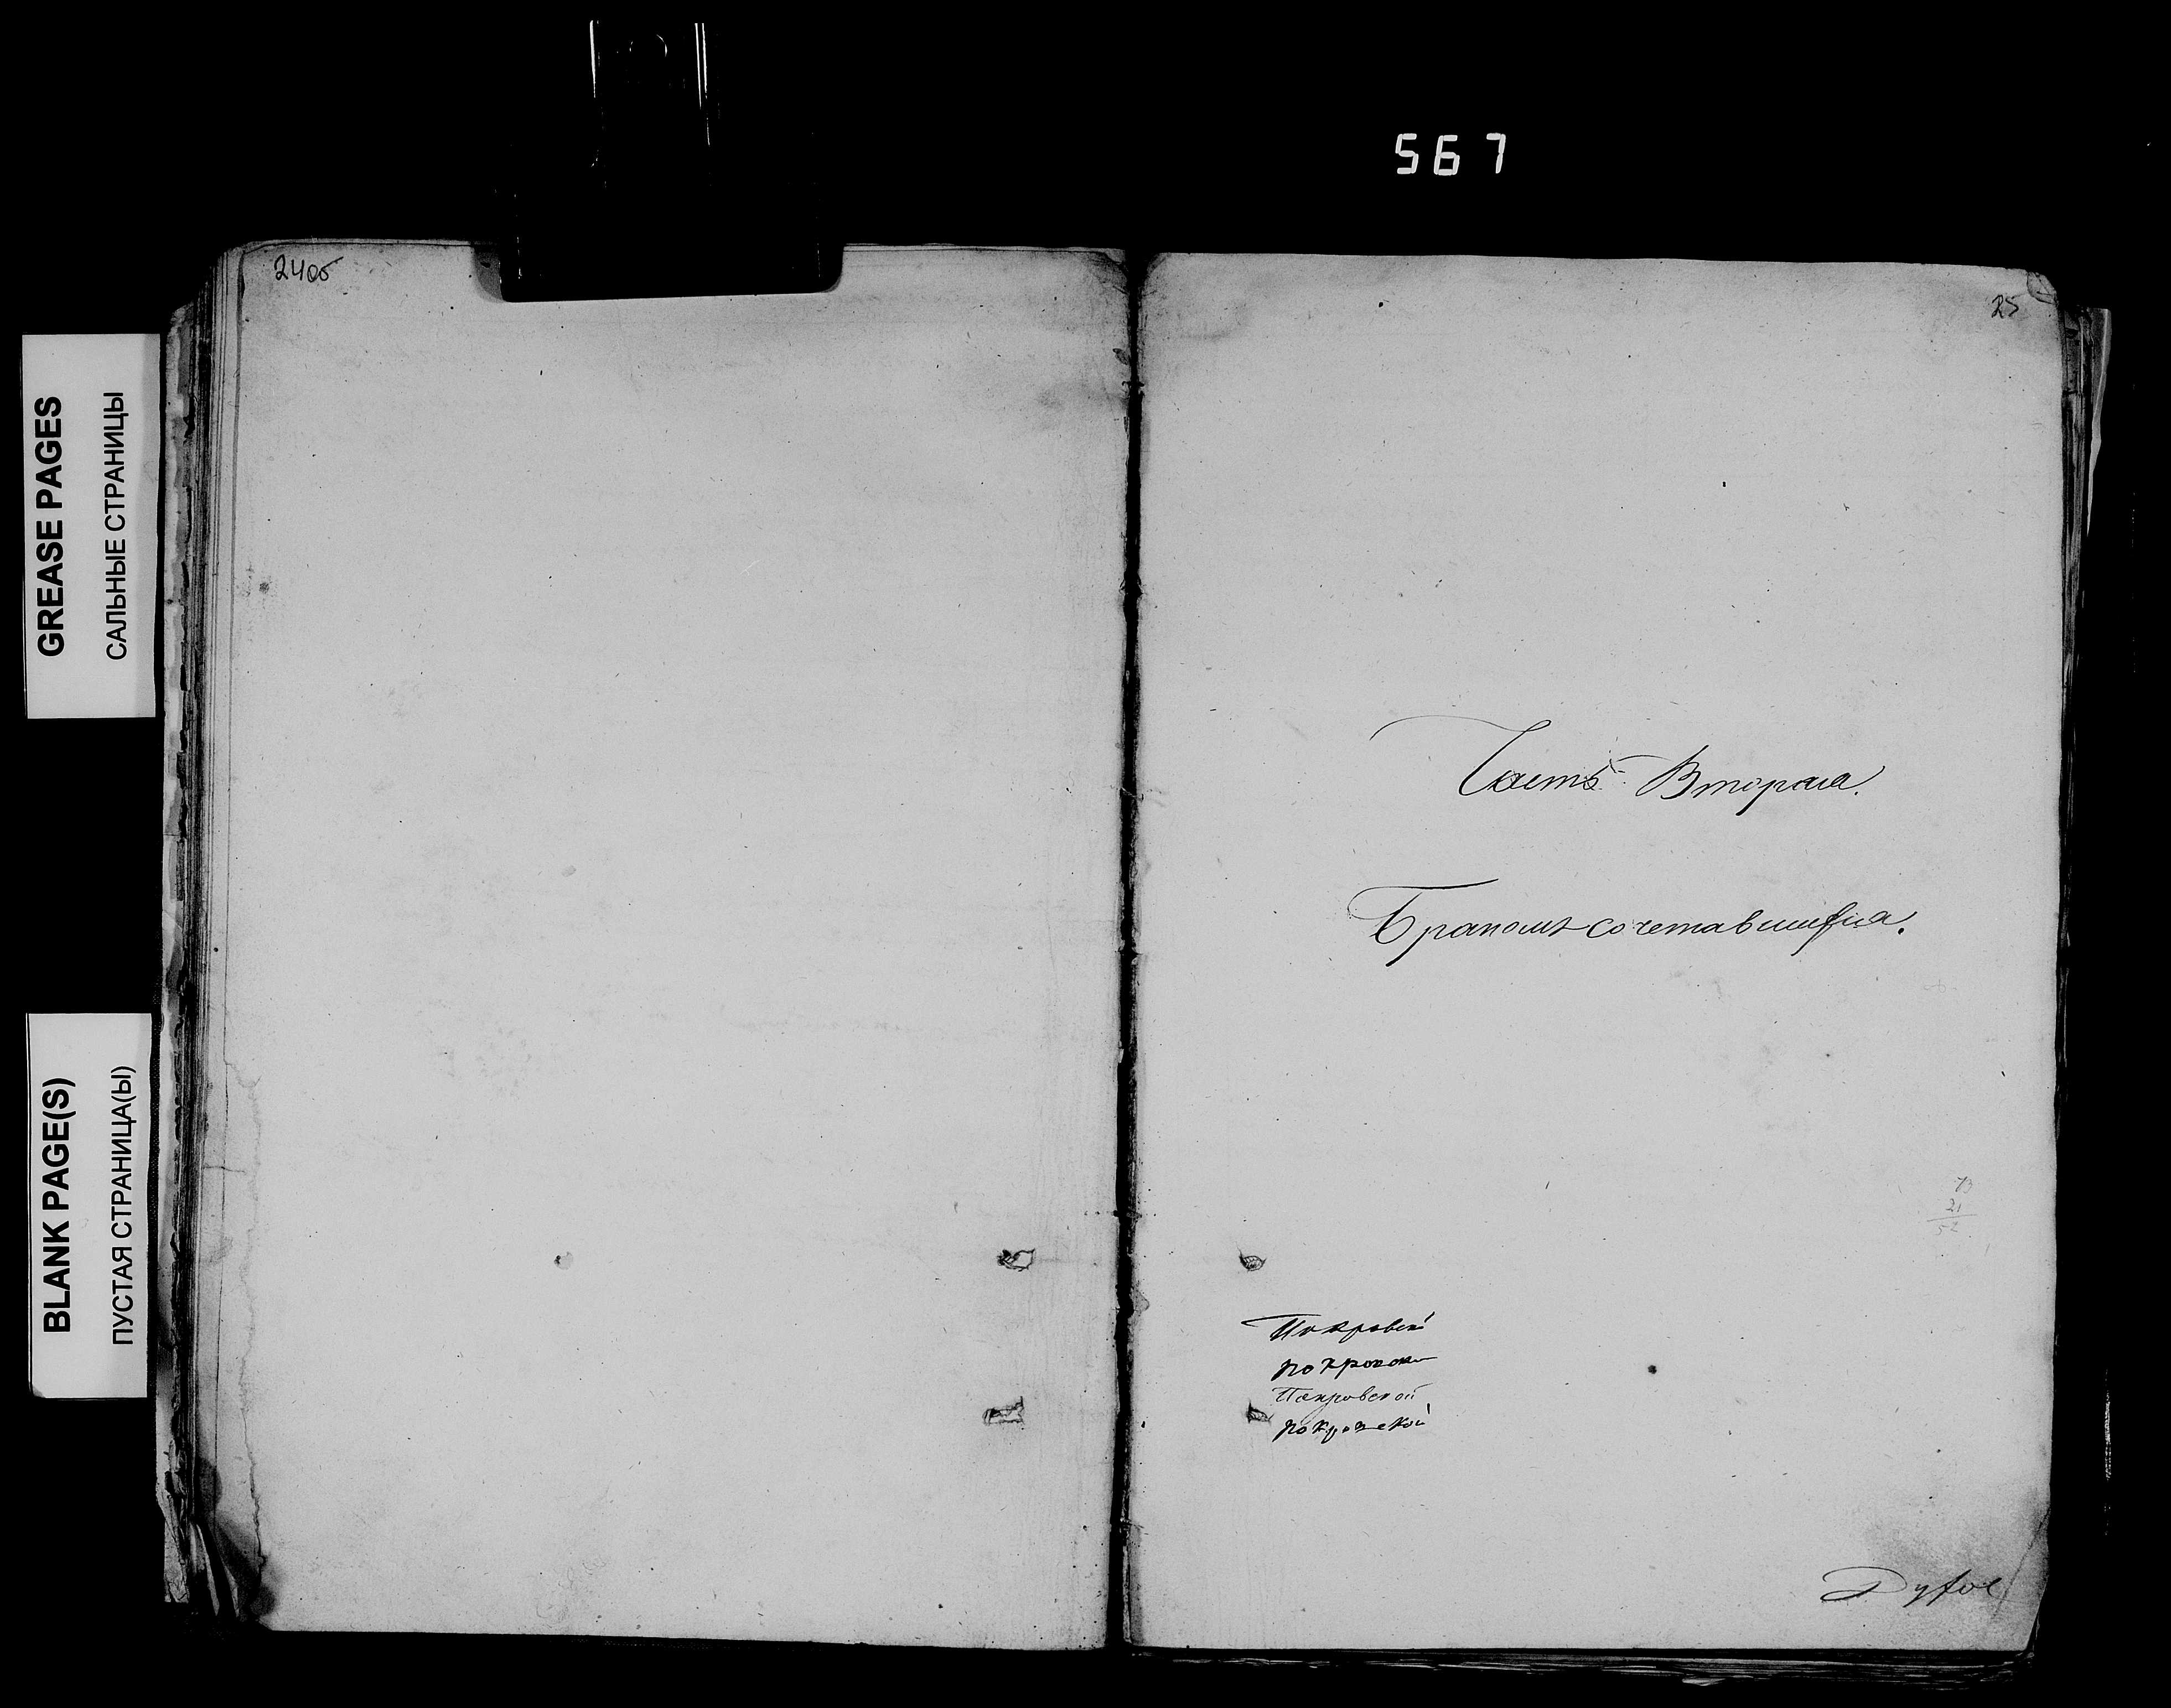 567
24об
25
GREASE PAGES
САЛЬНЫЕ СТРАНИЦЫ
BLANK PAGE(S)
ПУСТАЯ СТРАНИЦА(Ы)
Часть Вторая.
Бракомъ сочетавшихся.
73
21
52
Покровской
Покровской
Покровской